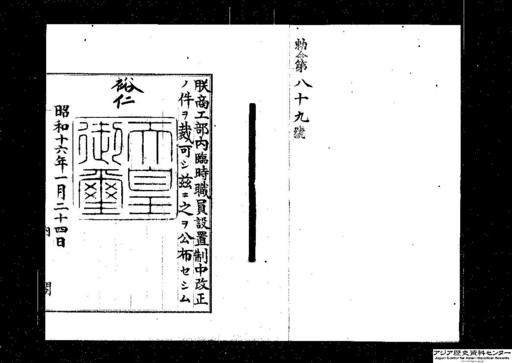 勅令第八十九號
朕商工部内臨時職員設置制中改正
ノ件ヲ裁可シ茲ニ之ヲ公布セシム
裕仁
天皇御璽
昭和十六年一月二十四日
アジア歴史資料センター
Japan Center for Asian Historical Records